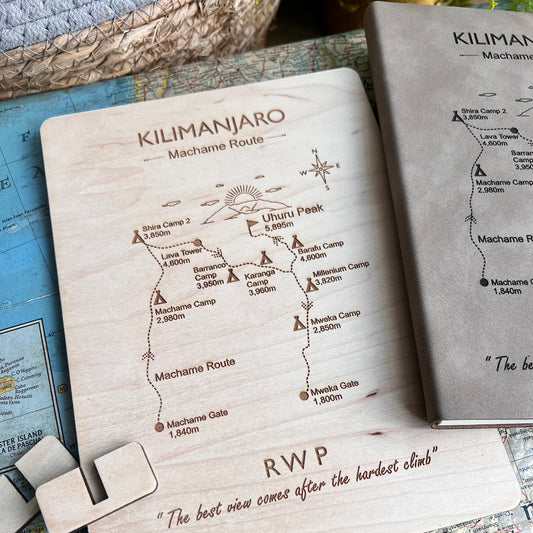 KILIMANJARO
Machame Route
N
W E
S
Shira Camp 2
3,850m
Uhuru Peak
5,895m
Lava Tower
4,600m
Barafu Camp
4,600m
Barranco
Camp
3,950m
Karanga
Camp
3,960m
Millenium Camp
3,820m
Machame Camp
2,980m
Mweka Camp
2,850m
Machame Route
Mweka Gate
1,800m
Machame Gate
1,840m
RWP
"The best view comes after the hardest climb"
KILIMAN
Machame
Shira Camp 2
3,850m
Lava Tower
4,600m
Barranco
Camp
3,950
Machame Camp
2,980m
Machame Ro
Machame G
1,840m
"The be